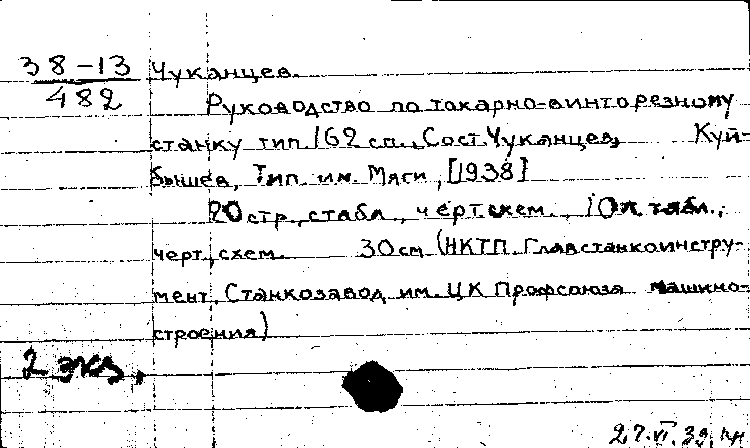 38-13 Чуканцев.
482
Руководство по токарно-винторезному
станку тип 162 сп., Сост. Чуканцев, Куй-
бышев, Тип. им. Мяги, [1938]
20 стр., с табл., черт. схем., 10 л. табл.,
черт., схем. 30 см (НКТП. Главстанкоинстру-
мент. Станкозавод им. ЦК Профсоюза машино-
строения)
2 экз.
27.VI.39.